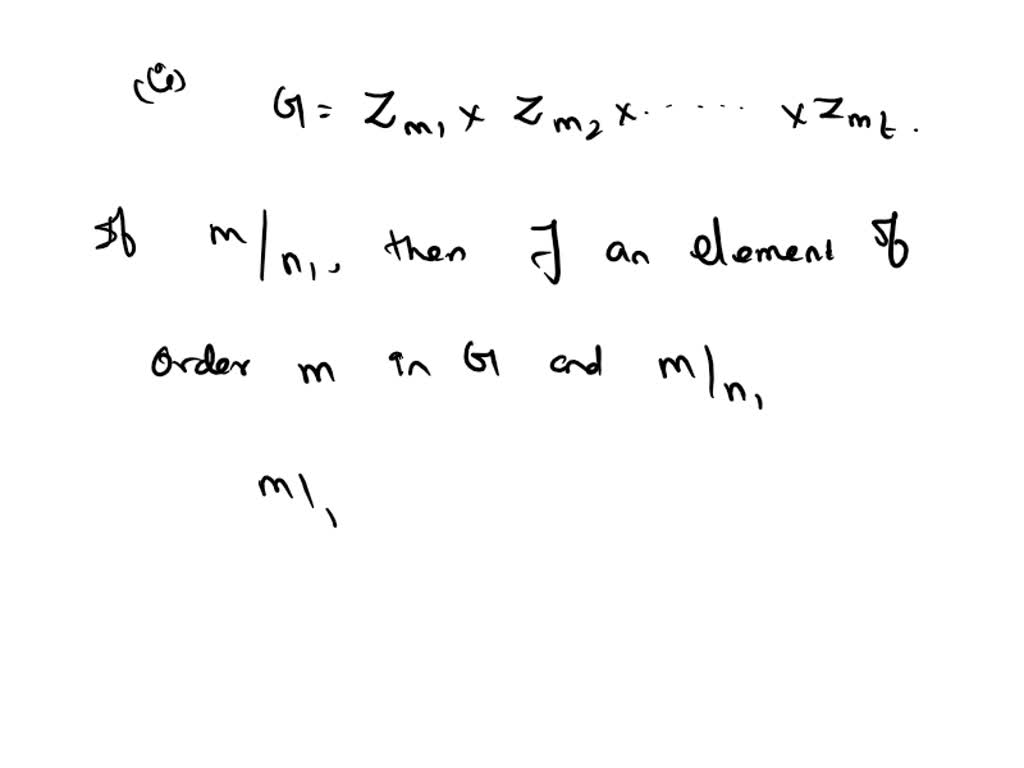 (a) G = Z_{m_1} x Z_{m_2} x ....... x Z_{m_t}.
If m/n_1, then ∃ an element of
order m in G and m/n_1
m/,